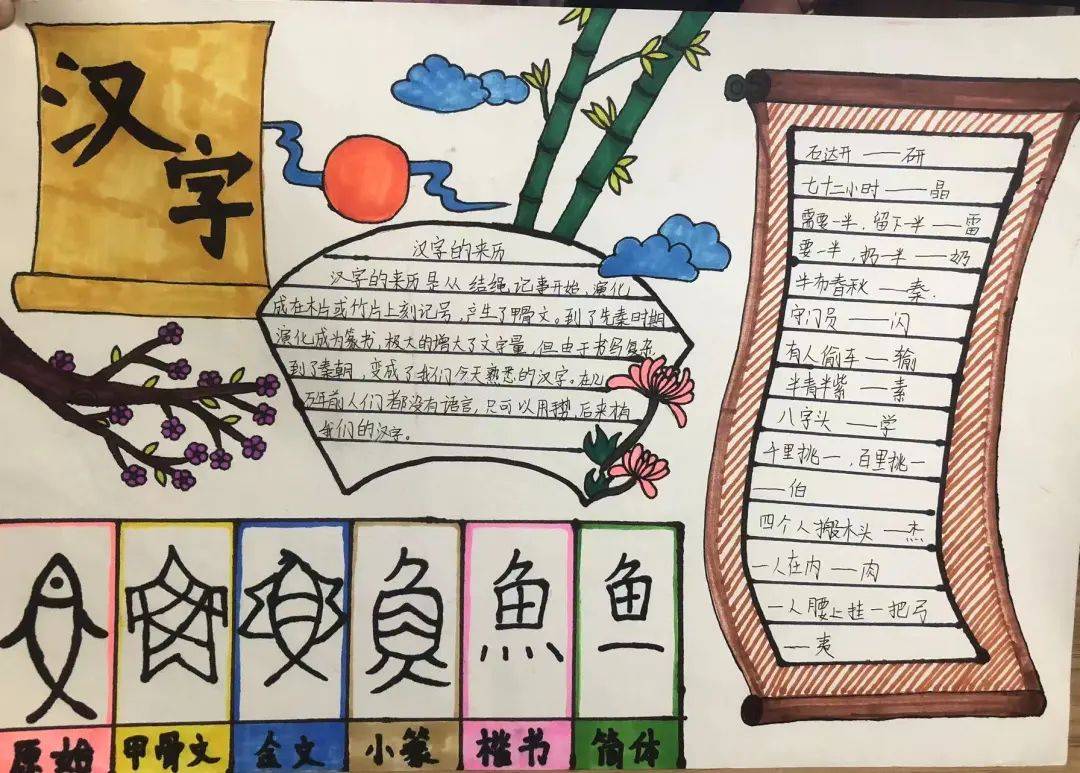 汉
字
汉字的来历
汉字的来历是从结绳记事开始,演化
成在木片或竹片上刻记号,产生了甲骨文。到了先秦时期
演化成为篆书,极大的增大了文字量,但由于书写复杂,
到了秦朝,变成了我们今天熟悉的汉字。在几
万年前人们都没有语言,只可以用,后来有
我们的汉字。
石达开——研
七十二小时——晶
需要一半,留下一半——雷
要一半,扔一半——奶
牛布春秋——秦.
守门员——闪
有人偷车——输
半青半紫——素
八字头——学
千里挑一,百里挑一
——伯
四个人搬木头——杰
一人在内——肉
一人腰上挂一把弓
——夷
原始
甲骨文
金文
小篆
楷书
简体
魚
鱼